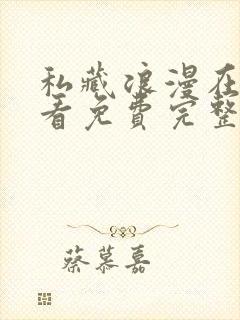 私藏浪漫在
看免費完整
蔡慕嘉